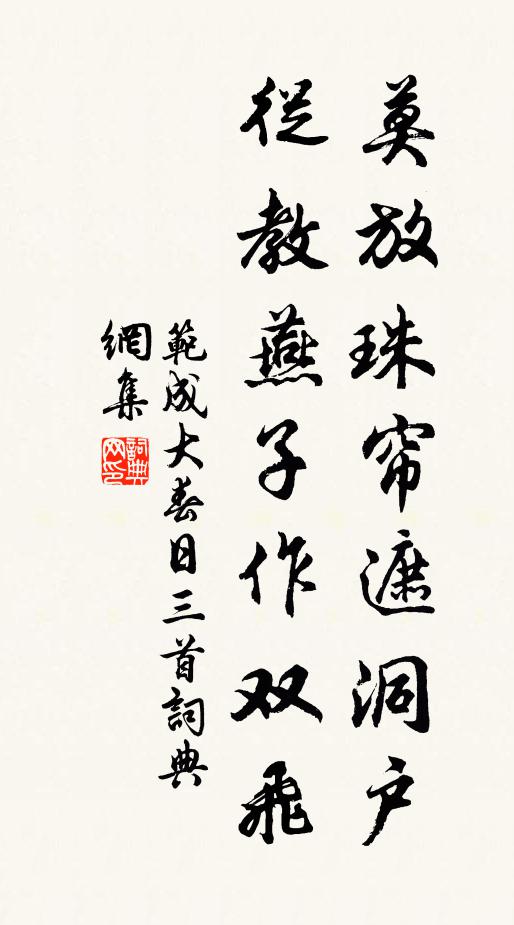 莫放珠帘遮洞户
從教燕子作双飛
範成大春日三首詞典
網集
詞典
网印